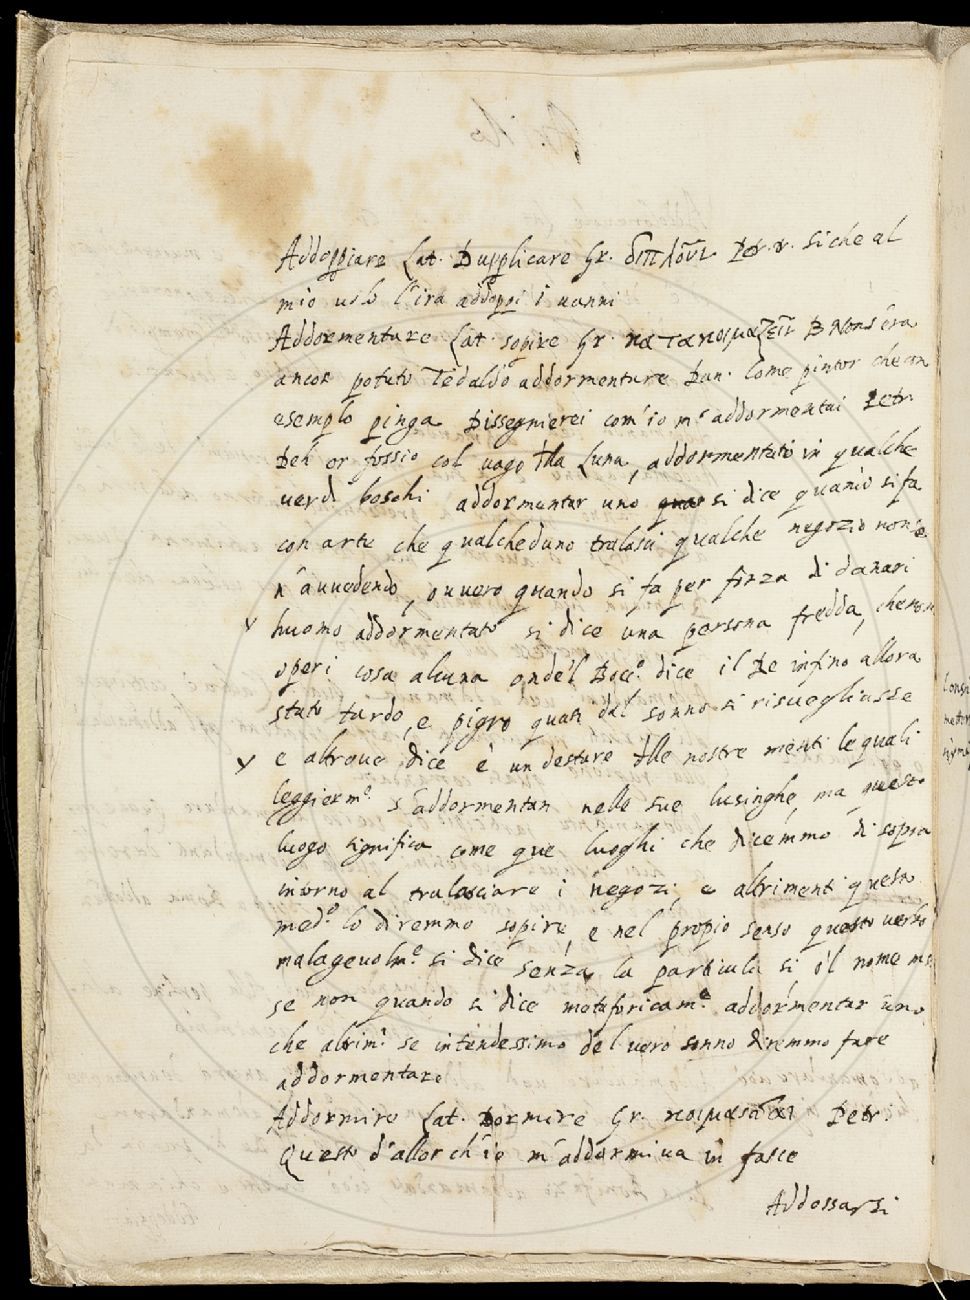 Addoppiare Lat. Dupplicare Gr. διπλοῦν Petr. si che al
mio volo l'ira addoppi i vanni
Addormentare Lat. sopire Gr. κατακοιμάζειν B Non s'era
ancor potuto Tedaldo addormentare Dan. Come pintor che con
esemplo pinga Dissegnierei com' io m' addormentai Petr
Deh or fossio col vago della Luna, addormentato in qualche
verdi boschi addormentar uno si dice quando si fa
con arte che qualcheduno tralasci qualche negozio non se
n' avvedendo, ovvero quando si fa per forza di danari
huomo addormentato si dice una persona fredda, che non
operi cosa alcuna ondel Bocc.º dice il Re infino allora
stato tardo, e pigro quasi dal sonno si risvegliasse
e altrove dice è un destare delle nostre menti le quali
leggierm.e s'addormentan nelle sue lusinghe, ma questo
luogo significa come que luoghi che dicemmo di sopra
intorno al tralasciare i negozi, e altrimenti questo
med.o lo diremmo sopire, e nel propio senso questo verbo
malagevolm.e si dice senza la particula si, o'l nome mi
se non quando si dice metaforicam.e addormentar uno
che altrim.i se intendessimo del vero sonno diremmo fare
addormentare
Addormire Lat. Dormire Gr. κοιμᾶσθαι Petr.
Questo d'allor ch'io m'addormiva in fasce
Addossarsi